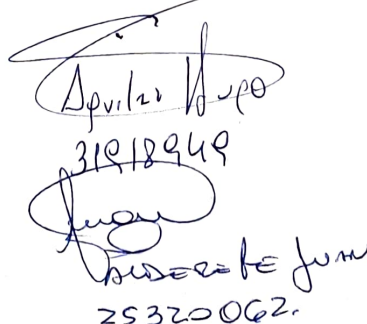 Aguilar Hugo
31918949
Juan
VALDERREBE JUAN
25320062.